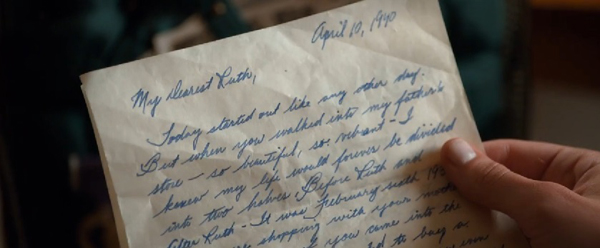 April 10, 1940
My Dearest Ruth,
Today started out like any other day.
But when you walked into my father's
store - so beautiful, so vibrant - I
knew my life would forever be divided
into two halves. Before Ruth and
After Ruth - It was February sixth 19
shopping with your mother
you came into the
to buy a